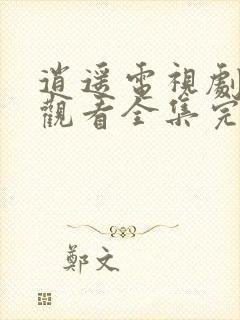 逍遥電視劇
觀看全集完
鄭文